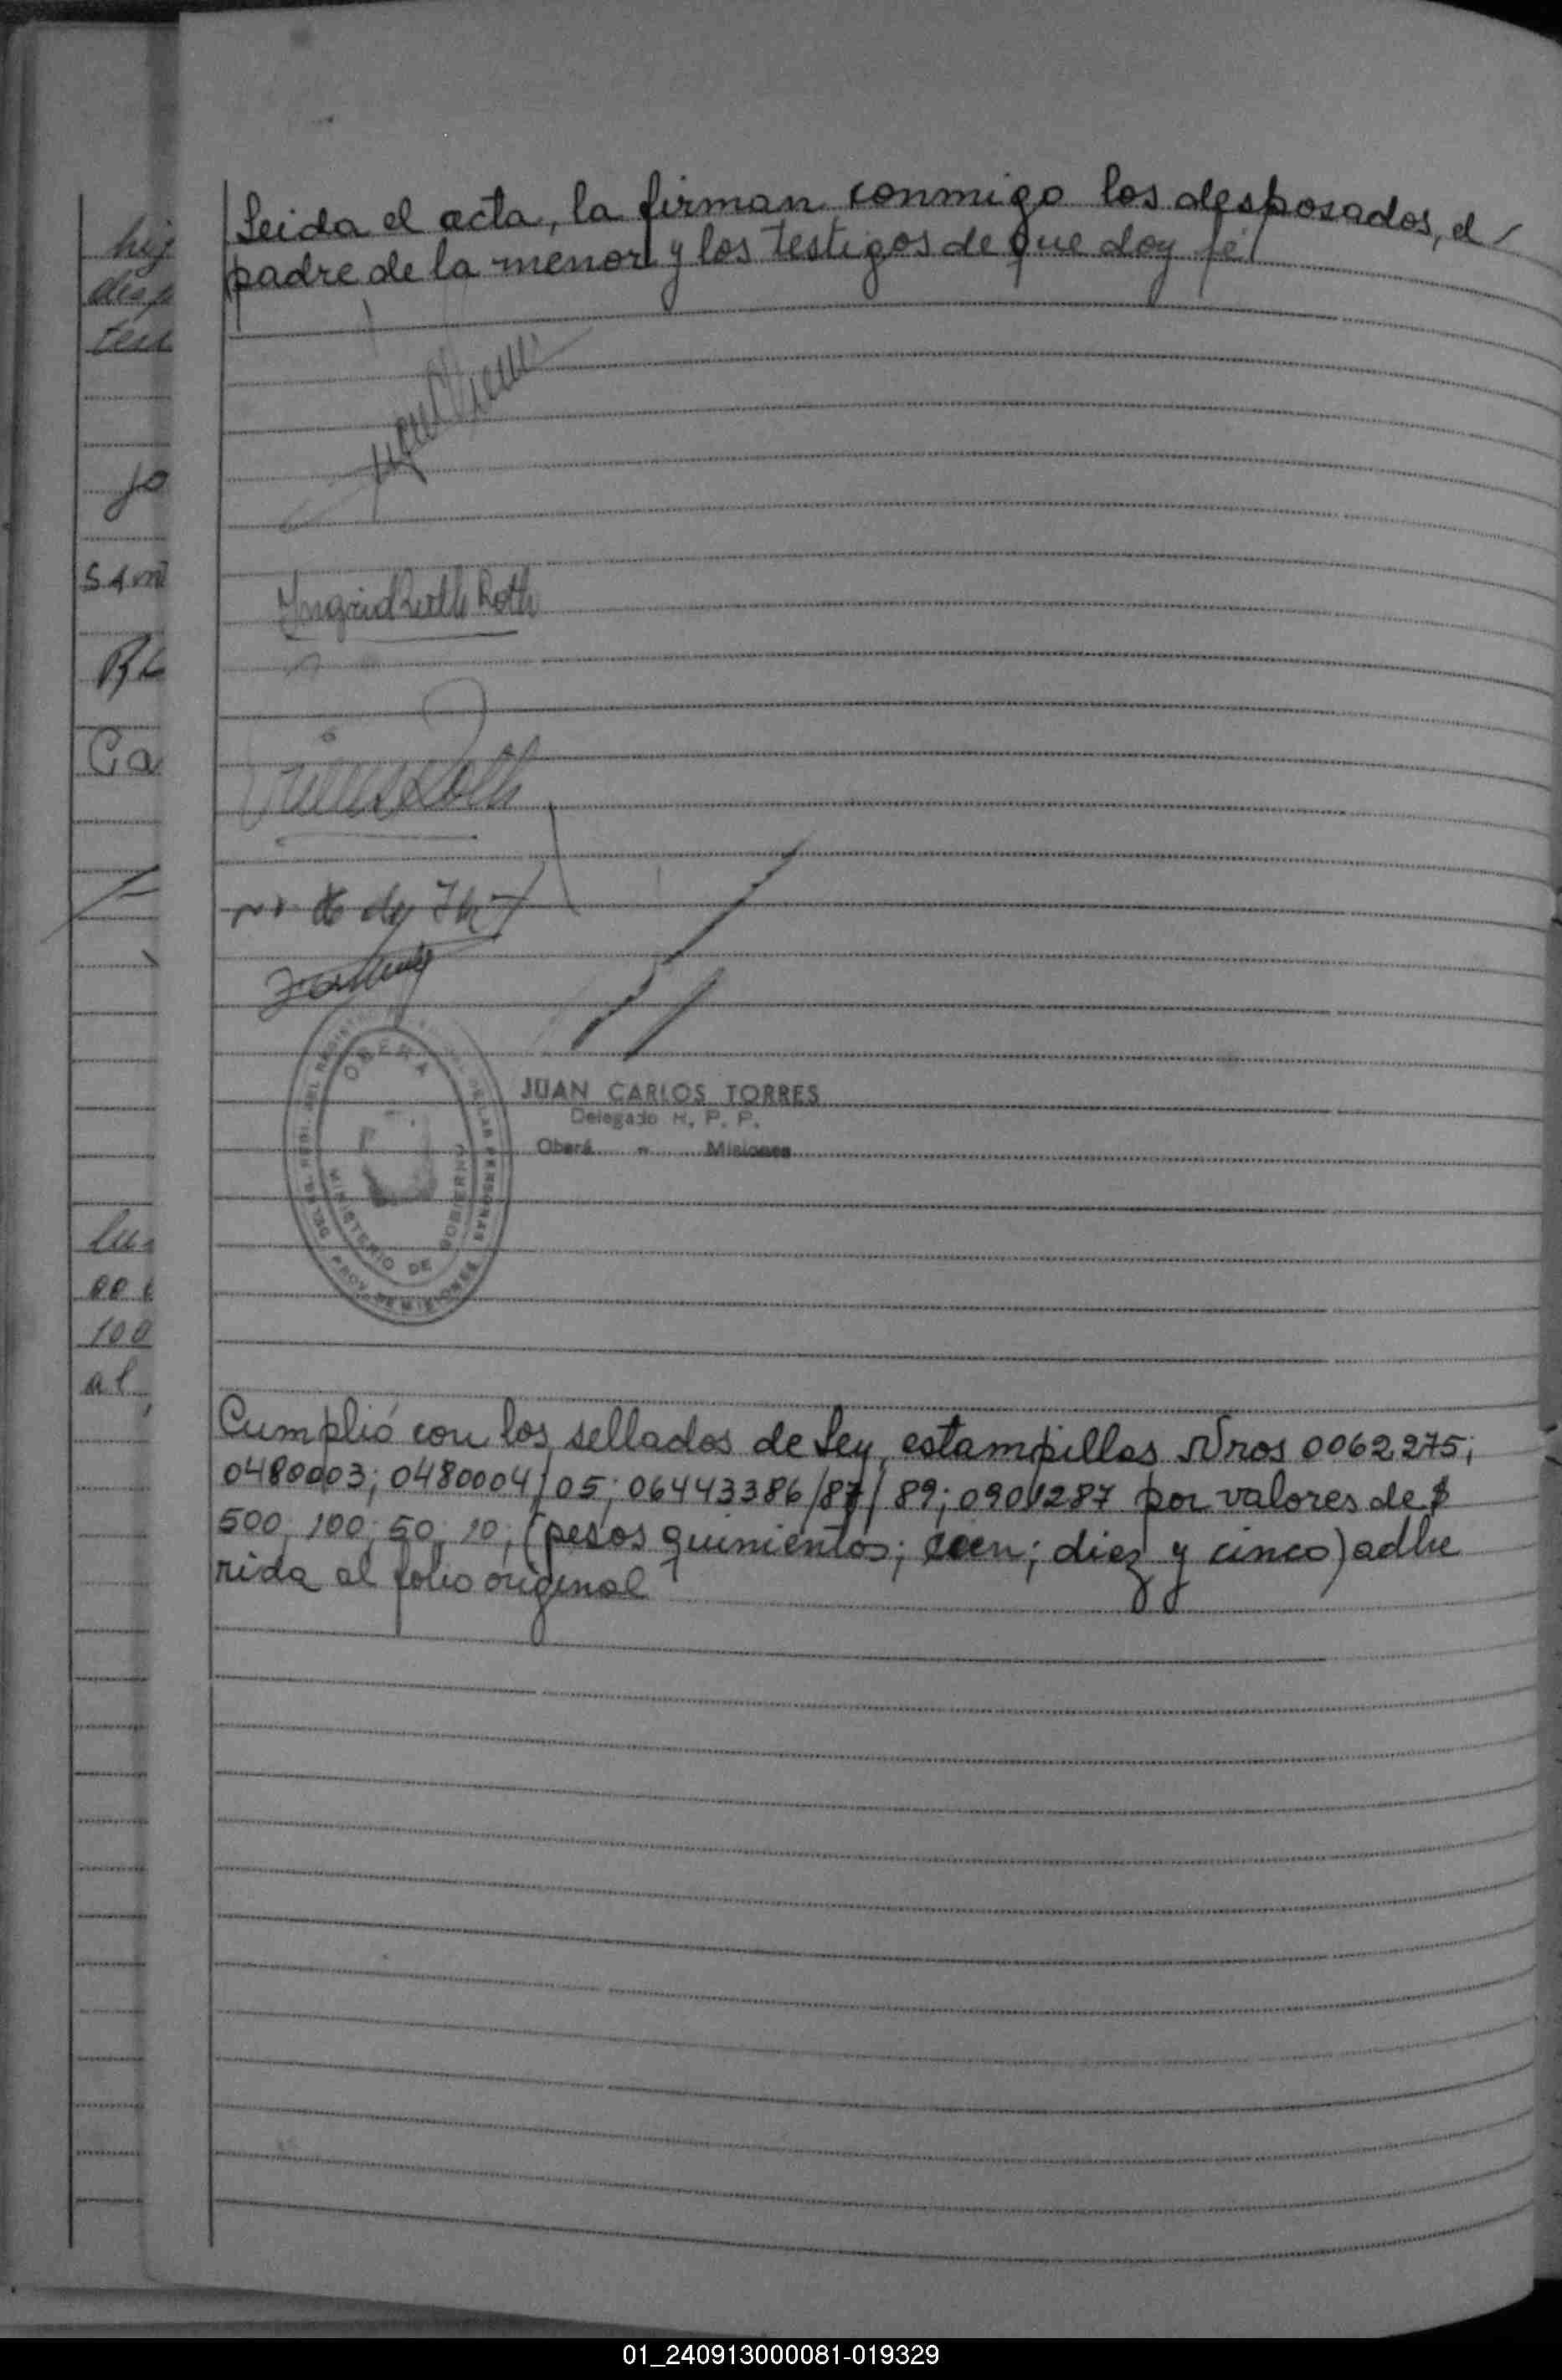 Leida el acta, la firman conmigo los desposados, el
padre de la menor y los testigos de que doy fé
Ingrid Ruth Roth
Roth
JUAN CARLOS TORRES
Delegado R. P. P.
Oberá - Misiones
OBERA
MINISTERIO DE GOBIERNO
DE LAS PERSONAS
PROV. DE MISIONES
Cumplió con los sellados de Ley, estampillas Nros 0062275;
0480003; 0480004/05; 06443386/87/89; 0901287 por valores de $
500; 100; 50; 10; (pesos quinientos; cien; diez y cinco) adhe
rida al folio original
hij
desp
jo
Ca
100
al
01_240913000081-019329